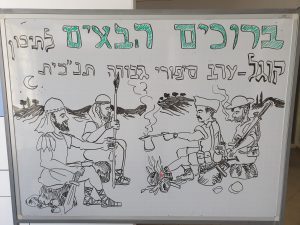 ברוכים הבאים לתיכון
קוגל-ערב סיפורי גבורה תנ"כית